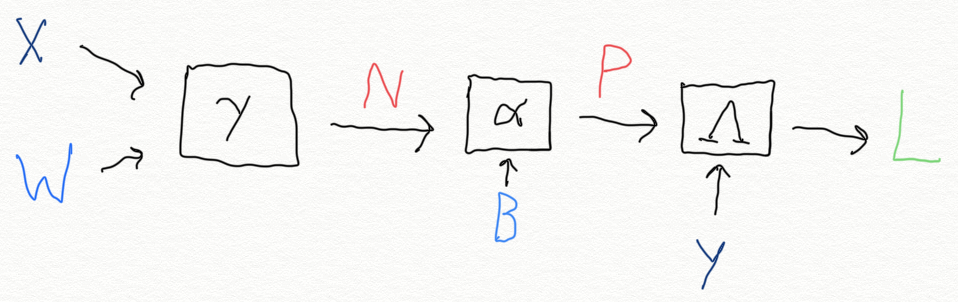 X
W
γ
N
α
B
P
Λ
Y
L